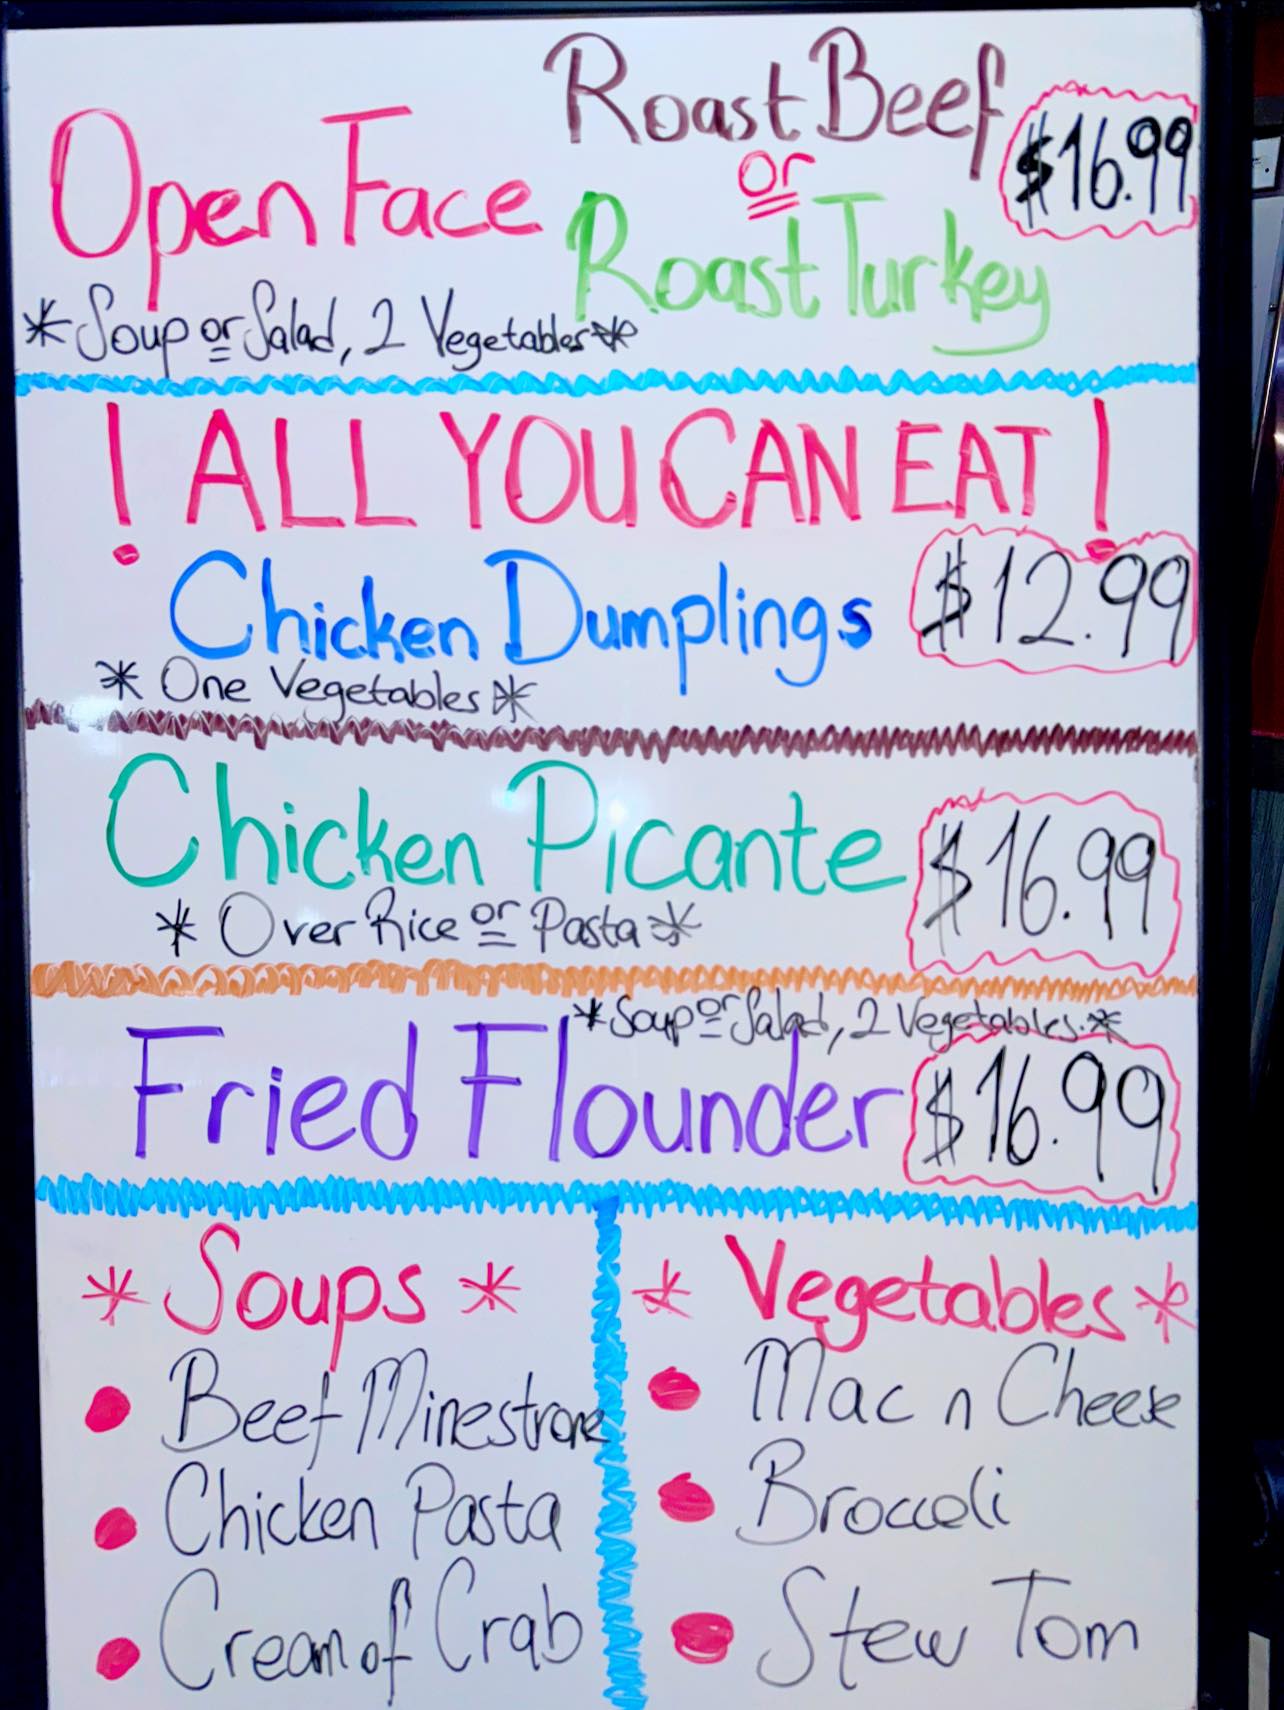 Open Face Roast Beef or Roast Turkey $16.99
*Soup or Salad, 2 Vegetables*
! ALL YOU CAN EAT !
Chicken Dumplings $12.99
* One Vegetables *
Chicken Picante $16.99
* Over Rice or Pasta *
*Soup or Salad, 2 Vegetables.*
Fried Flounder $16.99
* Soups *
Beef Minestrone
Chicken Pasta
Cream of Crab
* Vegetables *
Mac n Cheese
Broccoli
Stew Tom